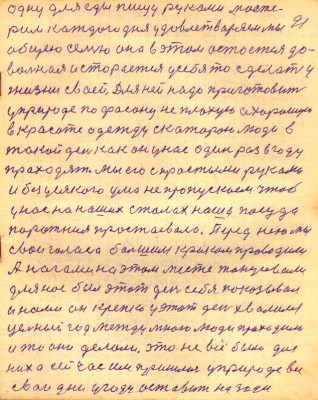 одну для еды пищу руками масте-
рил каждого дня удовлетваряем мы 91
общею семю она в этом остоется до-
волная и старается у себя то сделать у
жизни своей. Для ней надо приготовить
у природе по фасону не плохую а харошую
в красоте одежду с каторой люди в
такой ден как он у нас один раз в году
праходят. Мы его с простыми руками
и без усякого ума не пропускаем чтоб
у нас на наших сталах наша посуда
парожния простаевала. Перед нею мы
свои голаса болшим криком праводили
А нагами на этом месте танцевали
для нас был этот ден себя показывал
а нами он крепко у этот ден хвалилси
целный год между мною люди праходили
и то они делали. это не всё было для
них а сейчас им пришлос у природе
сваи дни у году оставить позади